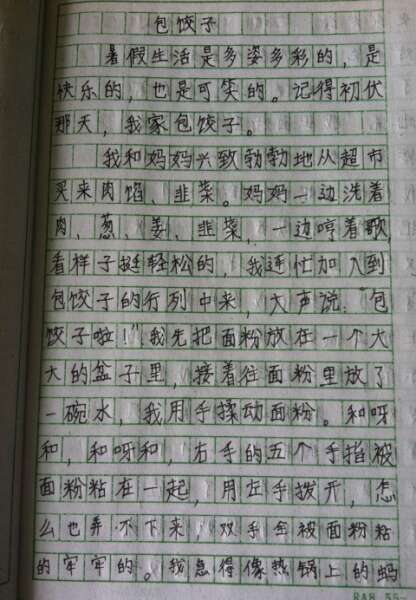 包饺子
暑假生活是多姿多彩的，是
快乐的，也是可笑的。记得初伏
那天，我家包饺子。
我和妈妈兴致勃勃地从超市
买来肉馅、韭菜。妈妈一边洗着
肉、葱、姜、韭菜，一边哼着歌，
看样子挺轻松的，我连忙加入到
包饺子的行列中来，大声说：“包
饺子啦！”我先把面粉放在一个大
大的盆子里，接着往面粉里放了
一碗水，我用手揉动面粉。和呀
和，和呀和，右手的五个手指被
面粉粘在一起，用左手拨开，怎
么也弄不下来，双手全被面粉粘
的牢牢的。我急得像热锅上的蚂